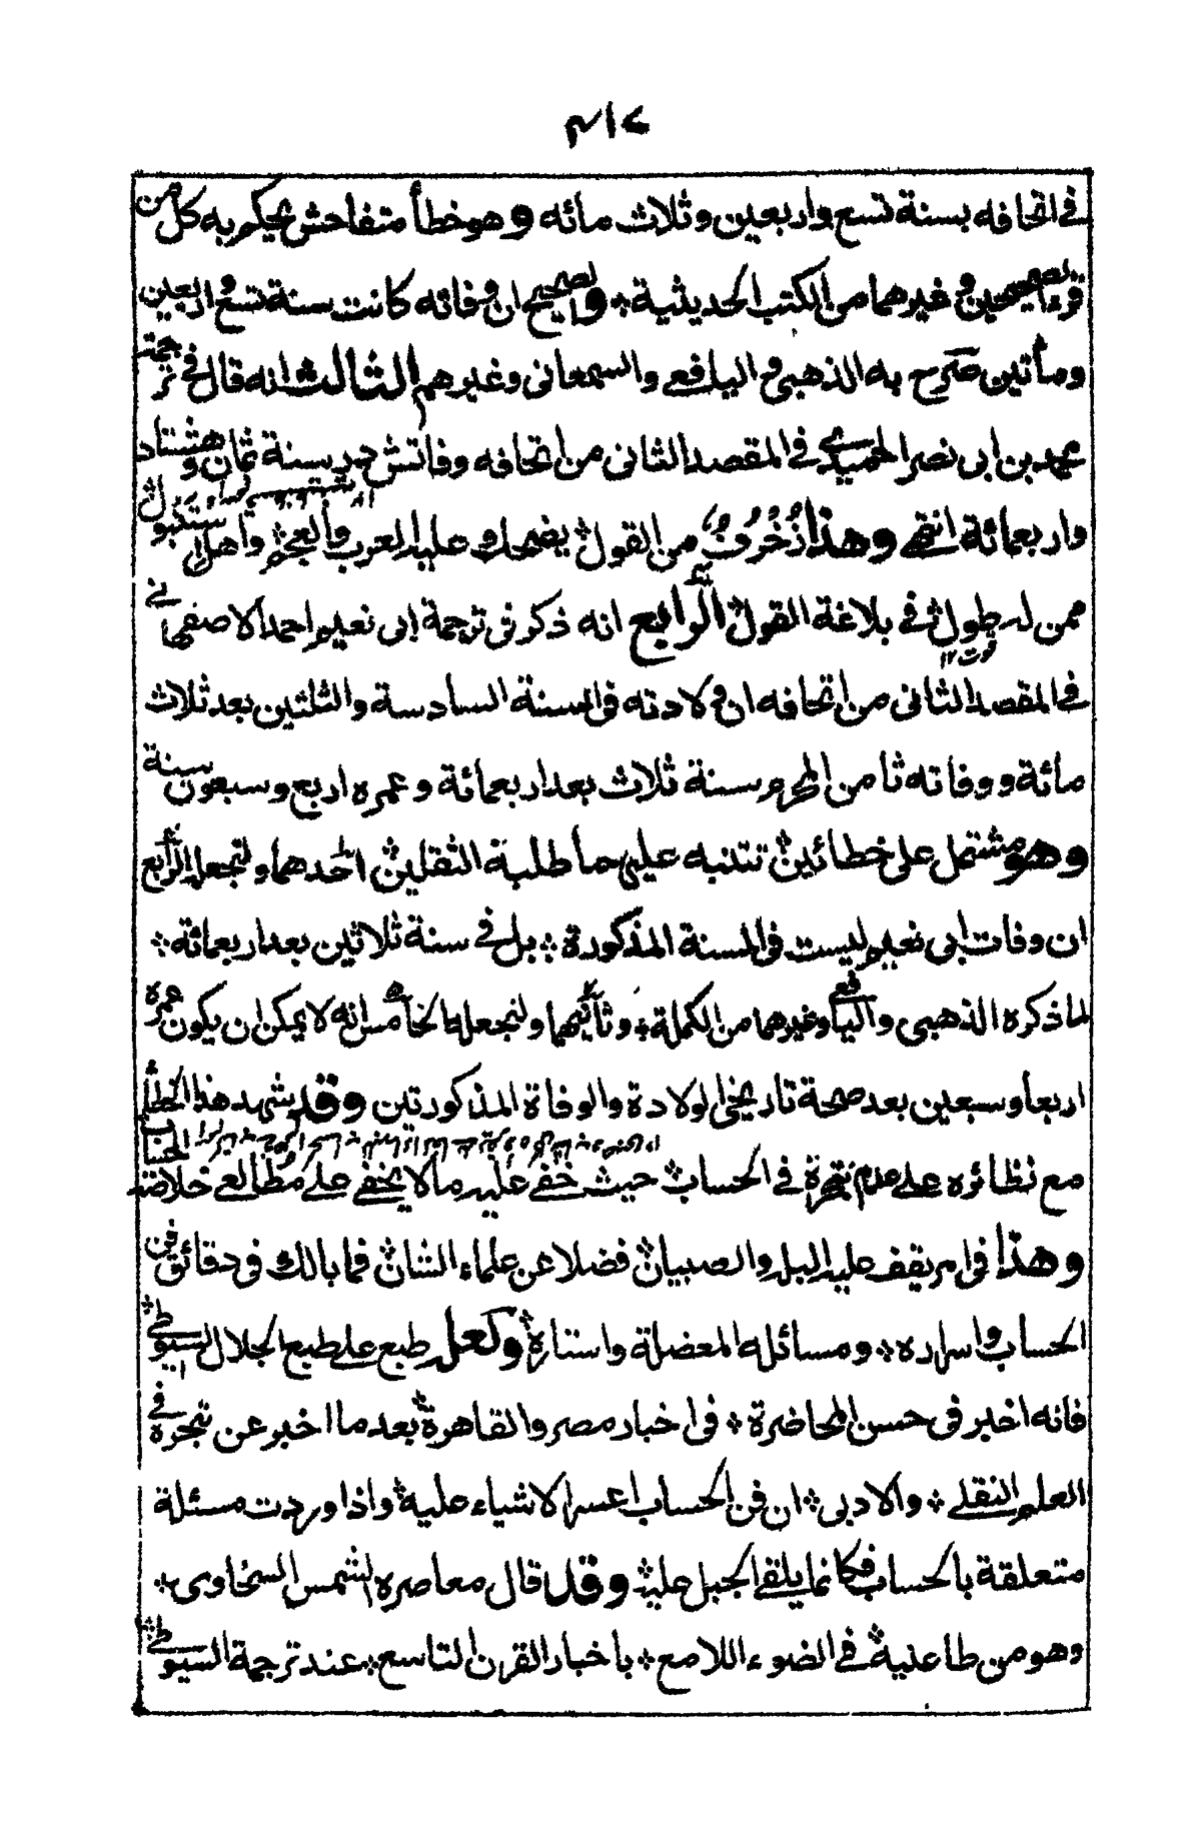 ٣١٧
في اتحافه بسنة تسع واربعين وثلاث مائه وهو خطأ متفاحش يحكم به كل من
قرء الصحيحين وغيرهما من الكتب الحديثية والصحيح ان وفائه كانت سنة تسع اربعين
ومأتين صرح به الذهبي واليافعي والسمعانى وغيرهم الثالث انه قال في ترجمة
محمد بن ابى نصر الحميدي في المقصد الثانى من اتحافه وفاتش در سنة ثمان وهشتاد
واربعمائة انتهى وهذا زُخْرُفٌ من القول يضحك عليه العرب والعجم واهل استنبول
ممن له طول في بلاغة القول الرابع انه ذكر فى ترجمة ابى نعيم احمد الاصفهاني
قوت ١٢
في المقصد الثانى من اتحافه ان ولادته فى السنة السادسة والثلثين بعد ثلاث
مائة ووفاته ثامن المحرم سنة ثلاث بعد اربعمائة وعمره اربع وسبعون سنة
وهو مشتمل على خطائين تنبه عليهما طلبة الثقلين احدهما ولنجعله الرابع
ان وفات ابى نعيم ليست فى السنة المذكورة بل في سنة ثلاثين بعد اربعمائة
لما ذكره الذهبى واليافعي وغيرهما من الكملة وثانيهما ولنجعله الخامس انه لا يمكن ان يكون عمره
اربعا وسبعين بعد صحة تاريخي الولادة والوفاة المذكورتين وقد شهد هذا الخطأ
مع نظائره على عدم تبحره في الحساب حيث خفي عليه ما لا يخفي على مطالعي خلاصة الحساب
وهذا فى امر يقف عليه البله والصبيان فضلا عن علماء الشان فما بالك فى دقائق فن
الحساب واسراره ومسائله المعضلة واستاره ولعل طبعه على طبع الجلال السيوطي
فانه اخبر فى حسن المحاضرة فى اخبار مصر والقاهرة بعد ما اخبر عن تبحره في
العلم النقلي والادبى ان فن الحساب اعسر الاشياء عليه واذا وردت مسئلة
متعلقة بالحساب فكانما يلقى الجبل عليه وقد قال معاصره الشمس السخاوى
وهو من طاعنيه في الضوء اللامع باخبار القرن التاسع عند ترجمة السيوطي